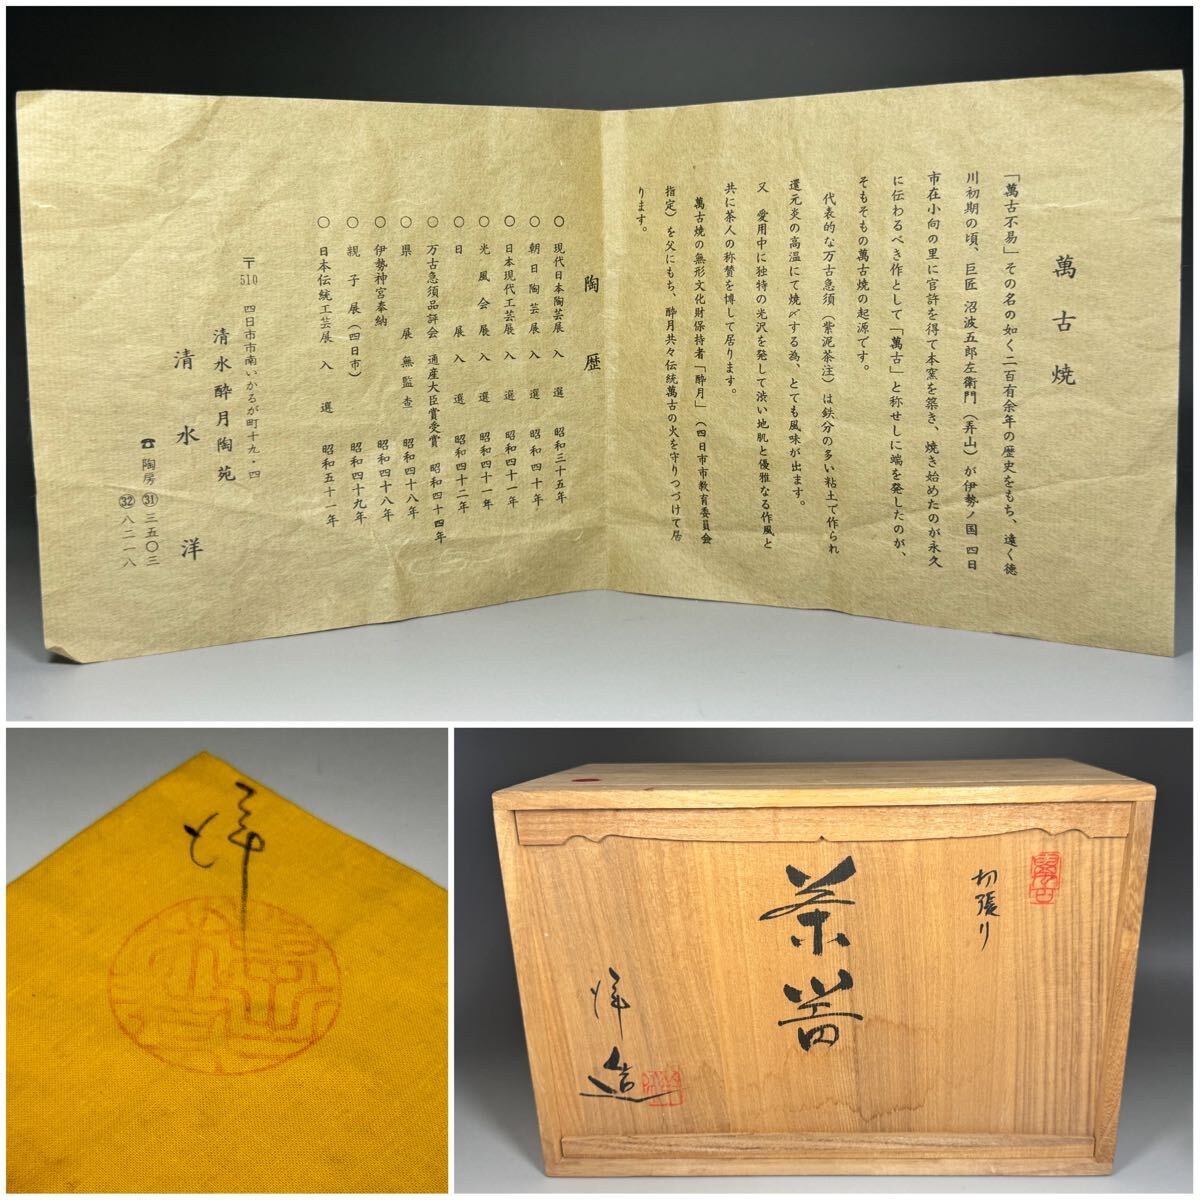 萬古焼
「萬古不易」その名の如く二百有余年の歴史をもち、遠く徳
川初期の頃、巨匠 沼波五郎左衛門（弄山）が伊勢ノ国 四日
市在小向の里に官許を得て本窯を築き、焼き始めたのが永久
に伝わるべき作として「萬古」と称せしに端を発したのが、
そもそもの萬古焼の起源です。
代表的な万古急須（紫泥茶注）は鉄分の多い粘土で作られ
還元炎の高温にて焼〆する為、とても風味が出ます。
又 愛用中に独特の光沢を発して渋い地肌と優雅なる作風と
共に茶人の称賛を博して居ります。
萬古焼の無形文化財保持者「酔月」（四日市市教育委員会
指定）を父にもち、酔月共々伝統萬古の火を守りつづけて居
ります。
陶歴
○ 現代日本陶芸展 入選 昭和三十五年
○ 朝日陶芸展 入選 昭和四十年
○ 日本現代工芸展 入選 昭和四十一年
○ 光風会展 入選 昭和四十一年
○ 日展 入選 昭和四十二年
○ 万古急須品評会 通産大臣賞受賞 昭和四十四年
○ 県展 無監査 昭和四十八年
○ 伊勢神宮奉納 昭和四十八年
○ 親子展（四日市） 昭和四十九年
○ 日本伝統工芸展 入選 昭和五十一年
〒510 四日市市南いかるが町十九・四
清水酔月陶苑
清水 洋
☎ 陶房 ㉛三五〇三
㉜八二一八
洋
萬古
切張り
茶器
洋造